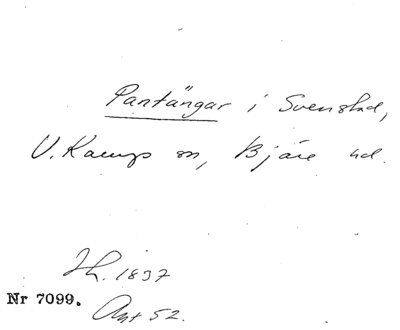 Pantängar i Svenstad,
V. Karups sn, Bjäre hd.
Th. 1837
Nr 7099.
Ant 52.